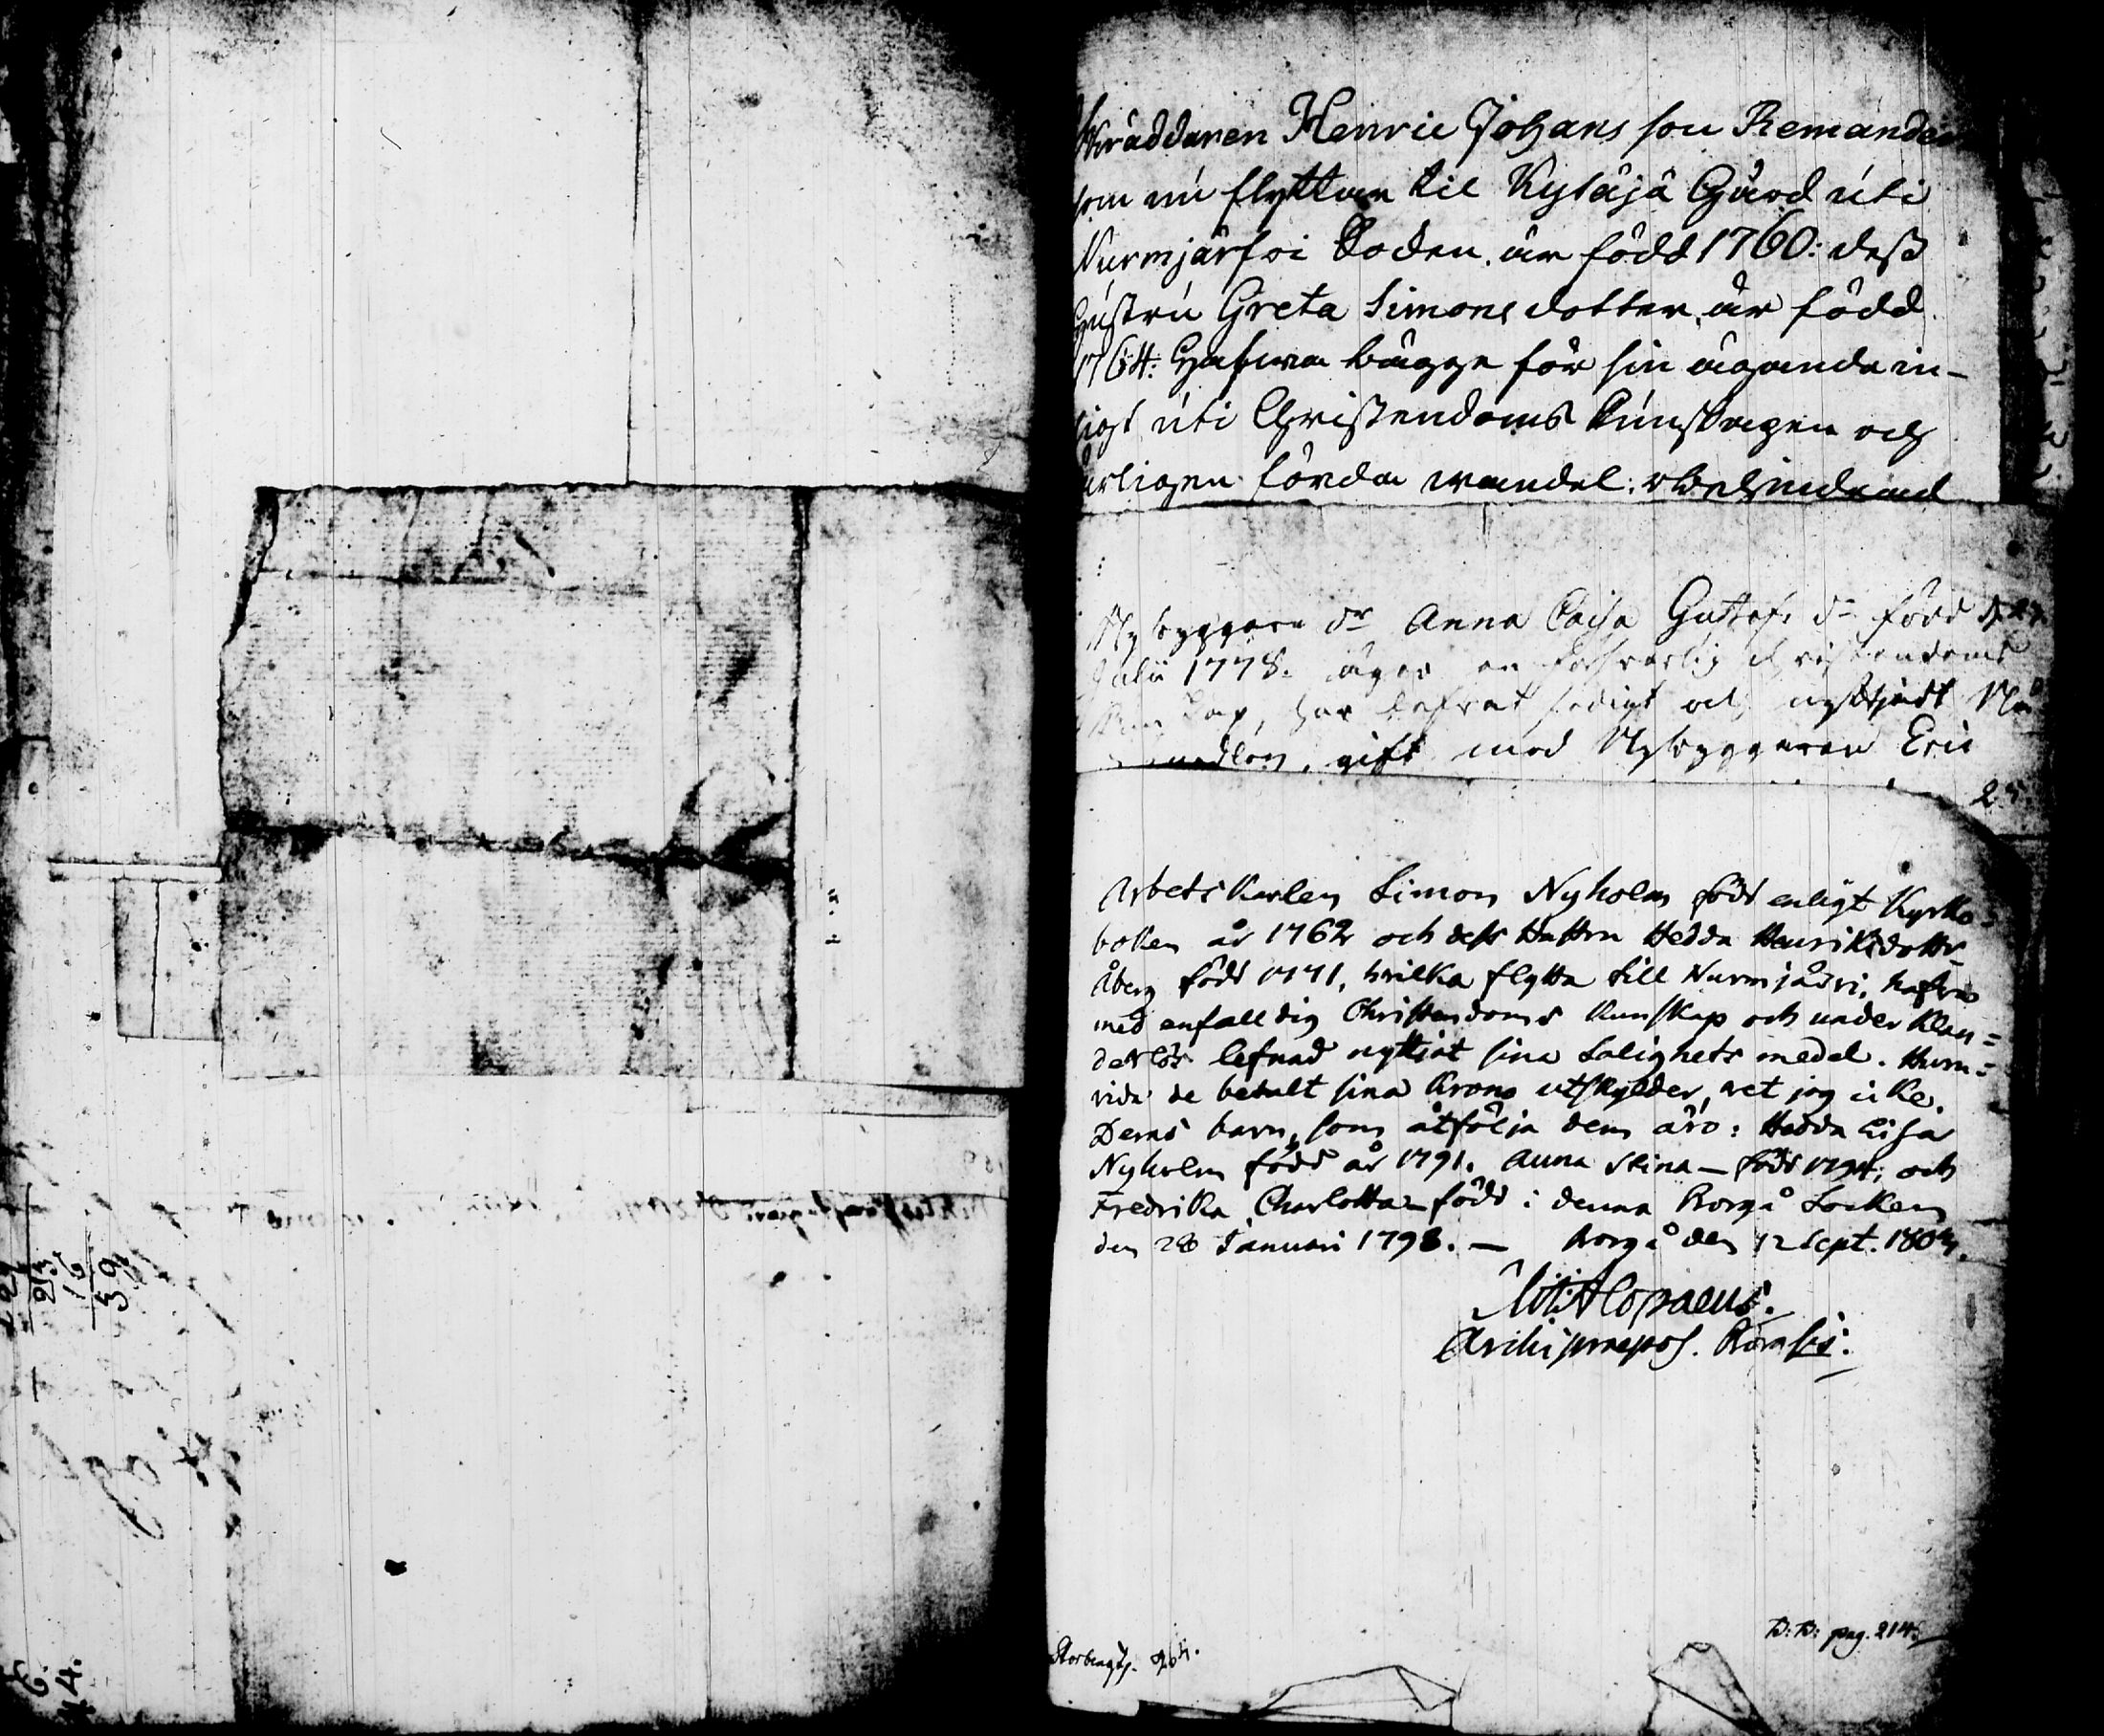 Skräddaren Henric Johans son Remander
som nú flyttar til Kytäjä Gård úti
Nurmjärfvi Socken. är född 1760: dess
Hústrú Greta Simons dotter, är född
1764: Hafwa bägge för sin ägande in-
sigt úti Christendoms kúnskapen och
ärligen förda wandel:
Nybyggare dr Anna Caisa Gustafs dr född d. 27
Julii 1778. äger en försvarlig christendoms
Kunskap, har lefvat sedigt och nyttjadt Nå
medlen, gift med Nybyggaren Eric
25.
Arbets Karlen Simon Nyholm född enligt Kyrko=
boken år 1762 och dess Hustru Hedda Henriksdottr
Åberg född 1771, hvilka flytta till Nurmjärvi, hafva
med enfalldig Christendoms Kunskap och under klan=
derlös lefnad nyttjat sina Salighets medel. Huru=
vida de betalt sina Krono utskylder, vet jag icke.
Deras barn, som åtfölja dem äro: Hedda Lisa
Nyholm född år 1791. Anna Stina — född 1794; och
Fredrika Charlotta — född i denna Borgå Socken
den 28 Januari 1798. — Borgå den 12 Sept. 1804.
M: Alopaeus.
Archipraepos. Borgåsis:
B: B: pag. 214.
23
16
39